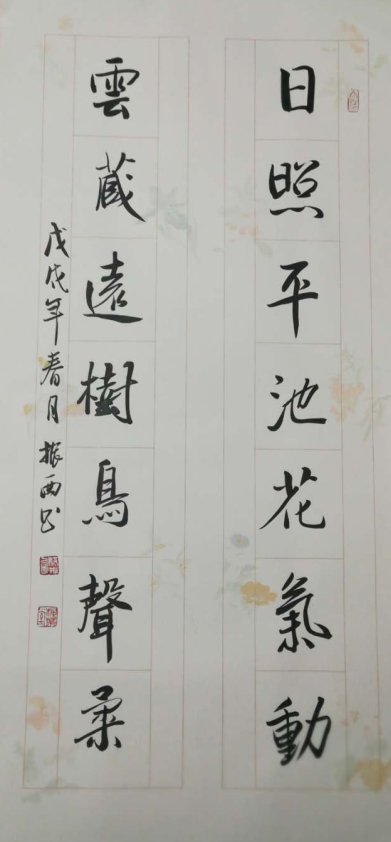 日照平池花氣動
雲蔵遠樹鳥聲柔
戊戌年春月振西书